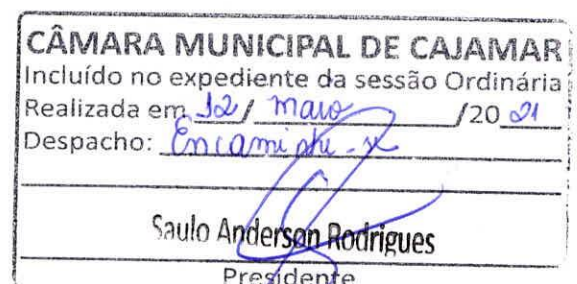 CÂMARA MUNICIPAL DE CAJAMAR
Incluído no expediente da sessão Ordinária
Realizada em 12 / maio /20 21
Despacho: Encaminhe-se
Saulo Anderson Rodrigues
Presidente